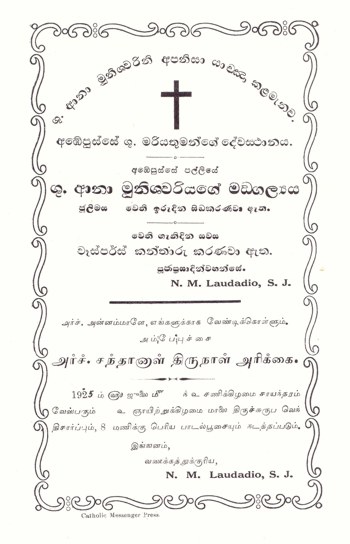 ශු. ආනා මුනිශ්වරිනි අපනිසා යාච්ඤා කලමැනව.
අඹේපුස්සේ ශු. මරියතුමන්ගේ දේවස්ථානය.
අඹේපුස්සේ පල්ලියේ
ශු. ආනා මුනිශ්වරියගේ මඞගල්‍යය
ජුලිමස වෙනි ඉරුදින සිඩකරණවා ඇත.
වෙනි සැනිදින සවස
වෑස්පර්ස් කන්තාරු කරණවා ඇත.
පූජාප්‍රසාදින්වහන්සේ.
N. M. Laudadio, S. J.
அர்ச். அன்னம்மாளே, எங்களுக்காக வேண்டிக்கொள்ளும்.
அம்பேபுச்சை
அர்ச். சந்தானாள் திருநாள் அரிக்கை.
1925 ம் ஜுலை மீ க் உ சனிக்கிழமை சாயந்தரம்
வேஸ்பரும் உ ஞாயிற்றுக்கிழமை மாலை திருச்சுருப வெக்
திசார்ப்பும், 8 மணிக்கு பெரிய பாடல்பூசையும் நடத்தப்படும்.
இங்ஙனம்,
வணக்கத்துக்குரிய,
N. M. Laudadio, S. J.
Catholic Messenger Press.